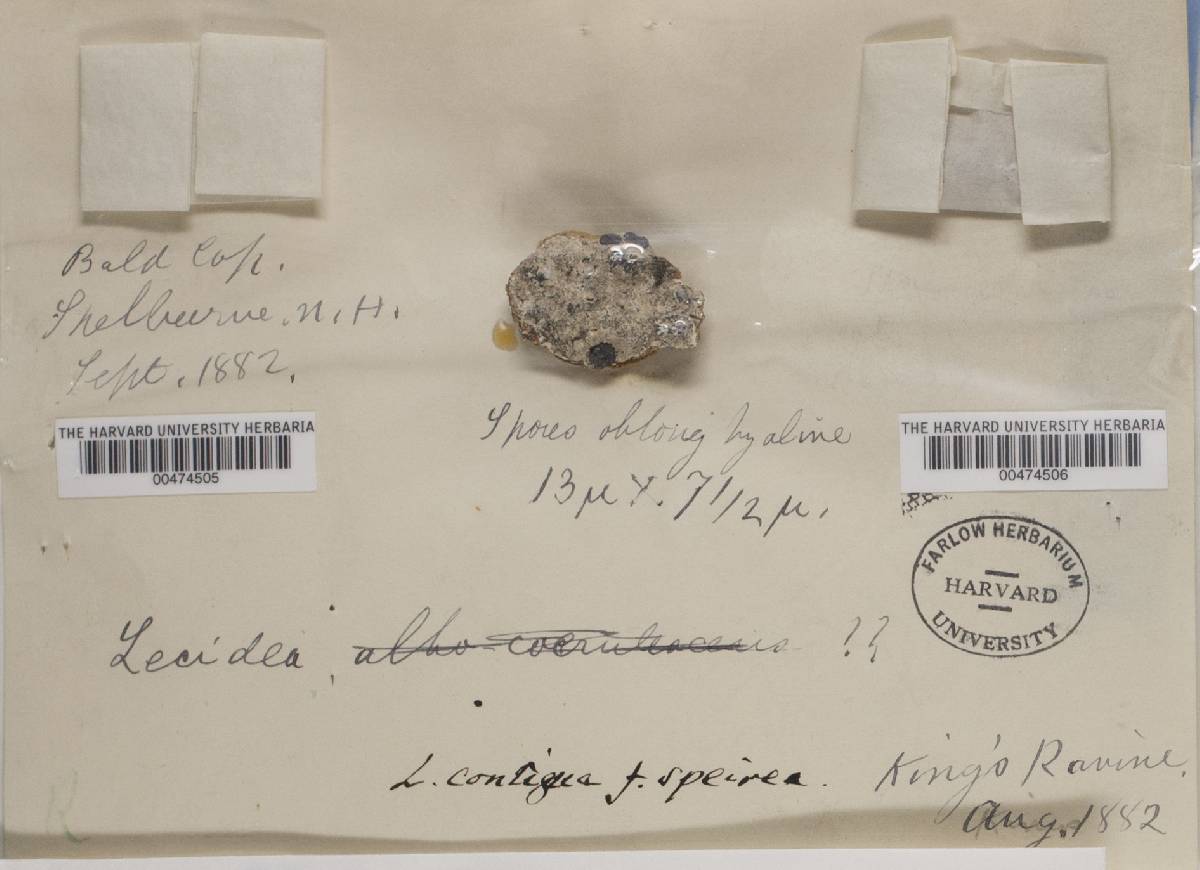 Bald Cap.
Shelburne. N. H.
Sept. 1882.
THE HARVARD UNIVERSITY HERBARIA
00474505
Spores oblong hyaline
13µ X. 7 1/2 µ.
THE HARVARD UNIVERSITY HERBARIA
00474506
FARLOW HERBARIUM
HARVARD
UNIVERSITY
Lecidea albo-coerulescens ??
L. contigua f. speirea.
King's Ravine.
Aug. 1882